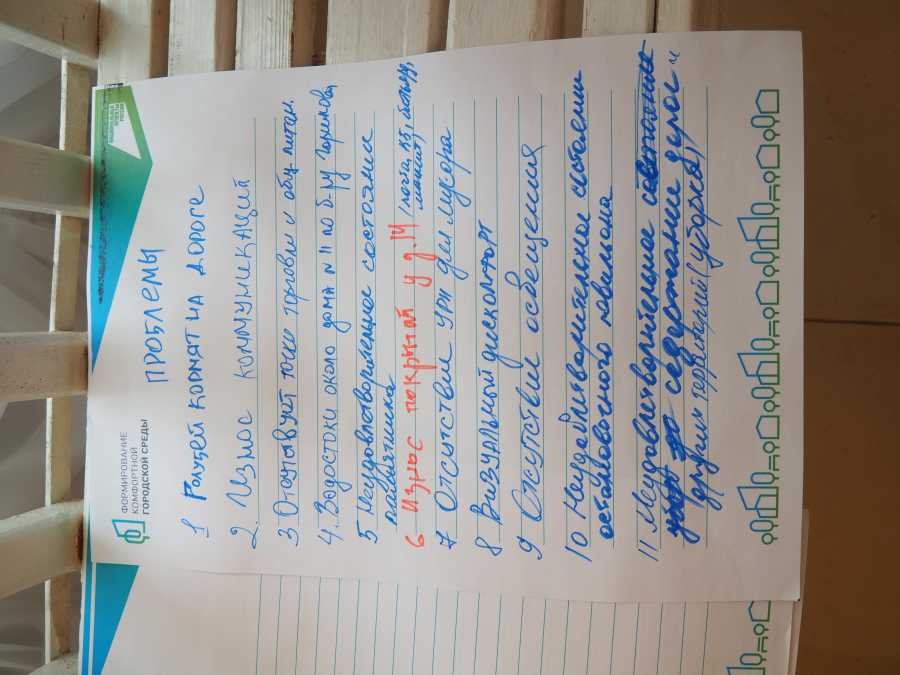 ФОРМИРОВАНИЕ
КОМФОРТНОЙ
ГОРОДСКОЙ СРЕДЫ
ПРОБЛЕМЫ
1 Голубей КОРМЯТ НА ДОРОГЕ
2. Износ коммуникаций
3 Отсутствуют точки торговли и общ. питан.
4. Водостоки около дома N 11 по б-ру
5 Неудовлетворительное состояние
памятника
6 Износ покрытий у д.14
7 Отсутствие урн для мусора
8 Визуальный дискомфорт
9 Отсутствие освещения
10 Неудовлетворительное состояние
остановочного павильона
11 Неудовлетворительное
содержание дорог
и территорий (уборка)